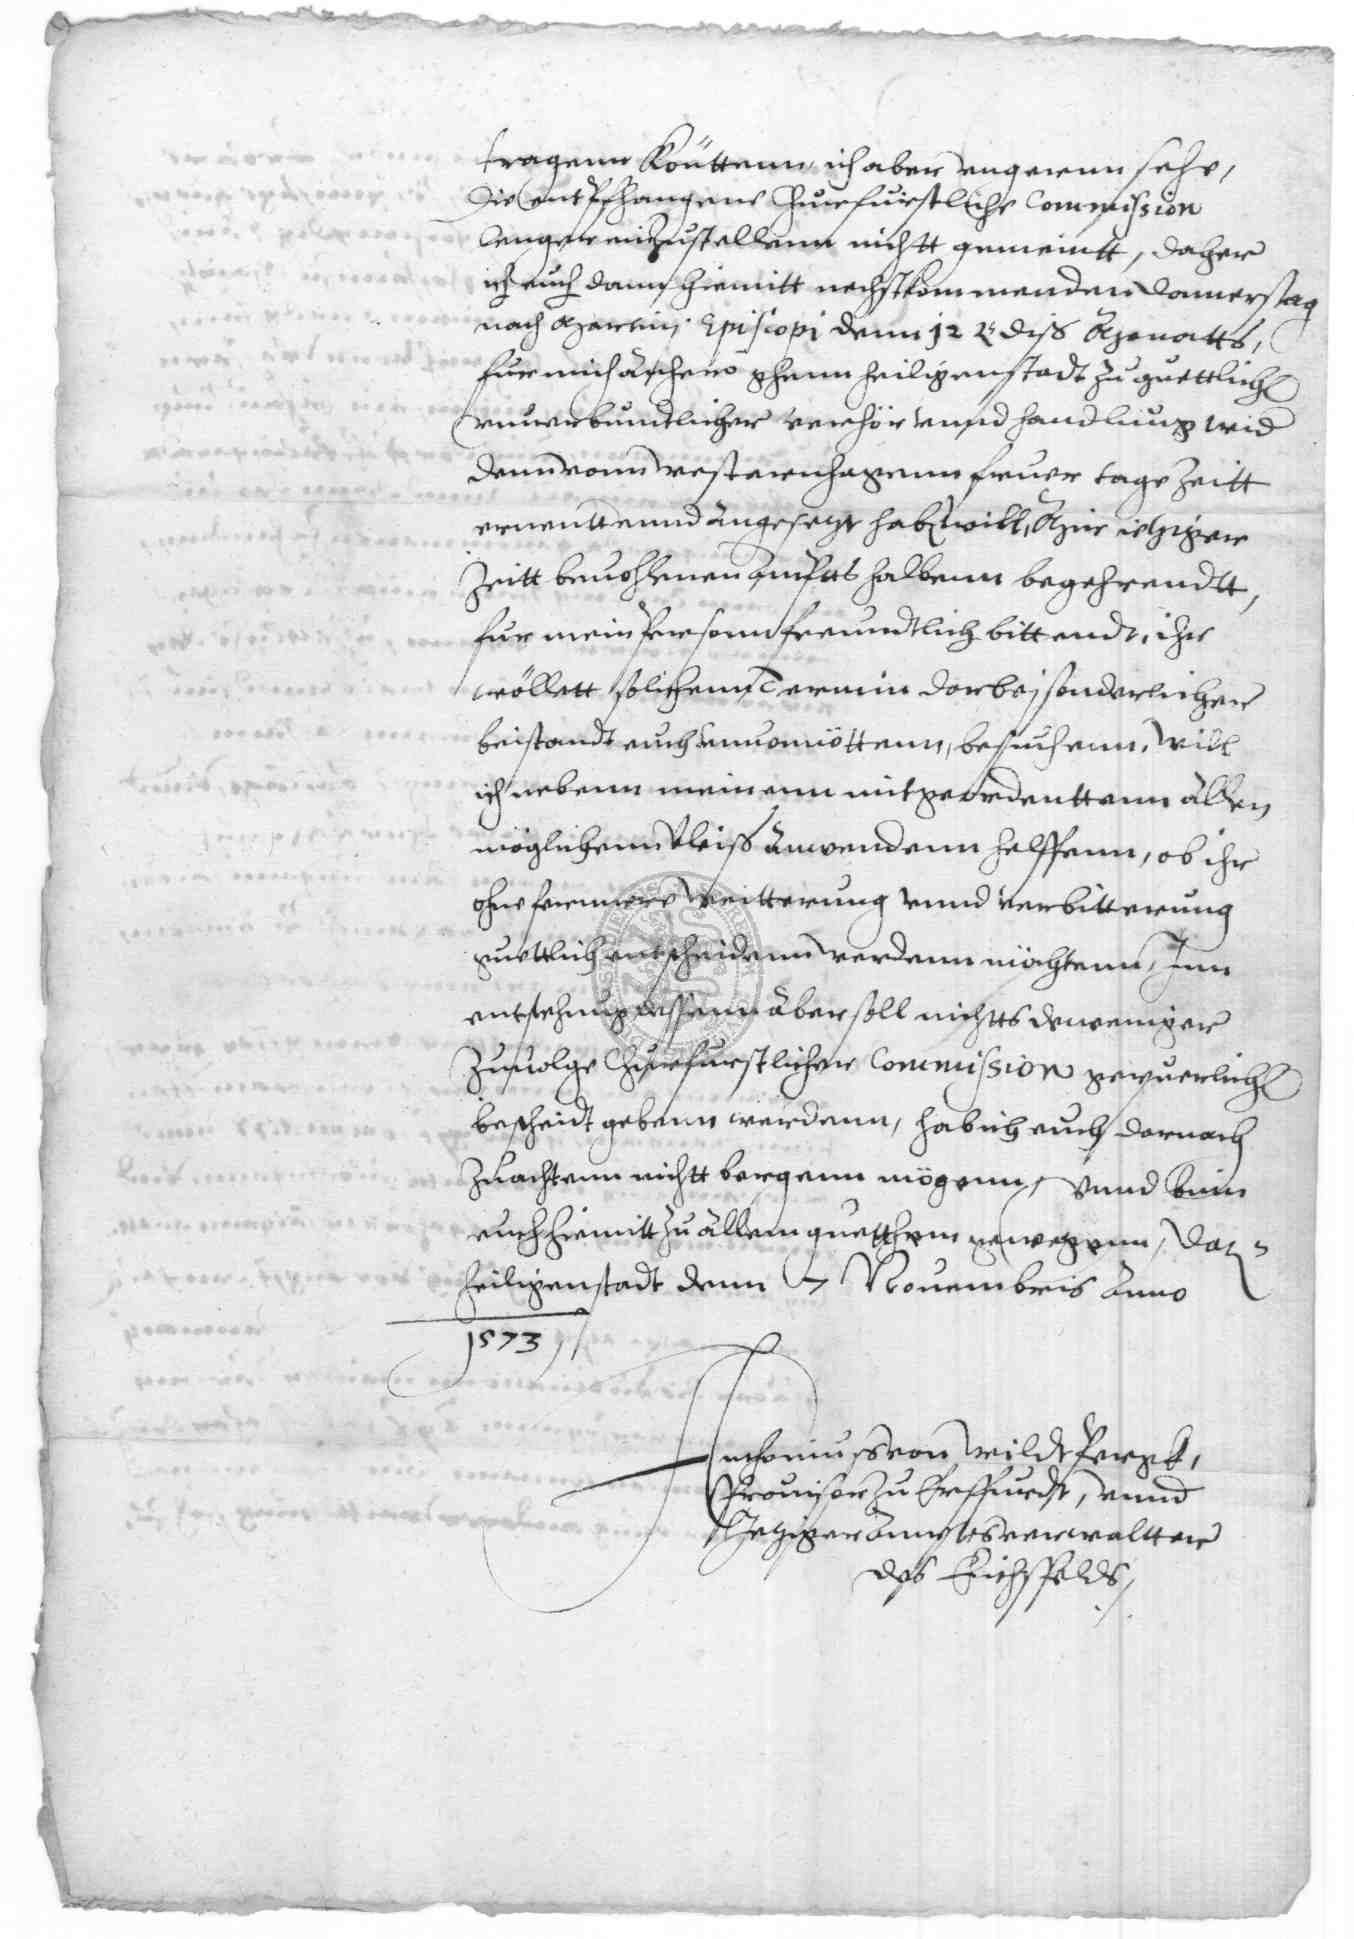 tragenn köuttenn, ich aber ungerun sehe,
die entpfhangene Churfurstliche Commission
lenger einzustellenn nichtt gemeintt, daher
ich euch dann hiemitt nechstkommenden Donnerstag
nach Martinj Episcopi denn 12 diß Monatts,
fur mich anhero ghenn Heiligenstadt zu guettlich
unuerbundtlicher verhör unnd handlung wid
denn vonn Westernhagenn fruer tage Zeitt
ernentt unnd angesetzt hab will, Mir itziger
Zeitt beuohlenen Ampts halbenn begehrendtt,
fur mein Person freundtlich bittendt, ihr
wöllett solichenn Termin dorbej sonderlicher
beistandt euch unuonnöttenn, besuchenn, Will
ich nebenn meinenn mitgeordenttenn allen
möglichenn Vleiß anwendenn helffenn, ob ihr
ohne fernnere Weitterung unnd verbitterung
guettlich entscheidenn werdenn möchtenn, Inn
entstehung dessenn aber soll nichtts deweniger
Zuuolge Churfurstlicher Commission
bescheidt gebenn werdenn, hab ich euch dornach
Zuachtenn nichtt bergenn mögenn, Unnd binn
euch hiemitt zu allem guetthem gewegenn, Dat
Heiligenstadt denn 7 Nouembris Anno
1573
Anthonius von Wildtpergk,
Prouisor zu Erffurdt, unnd
Itziger Amptsverwaltter
des Eichsfelds,